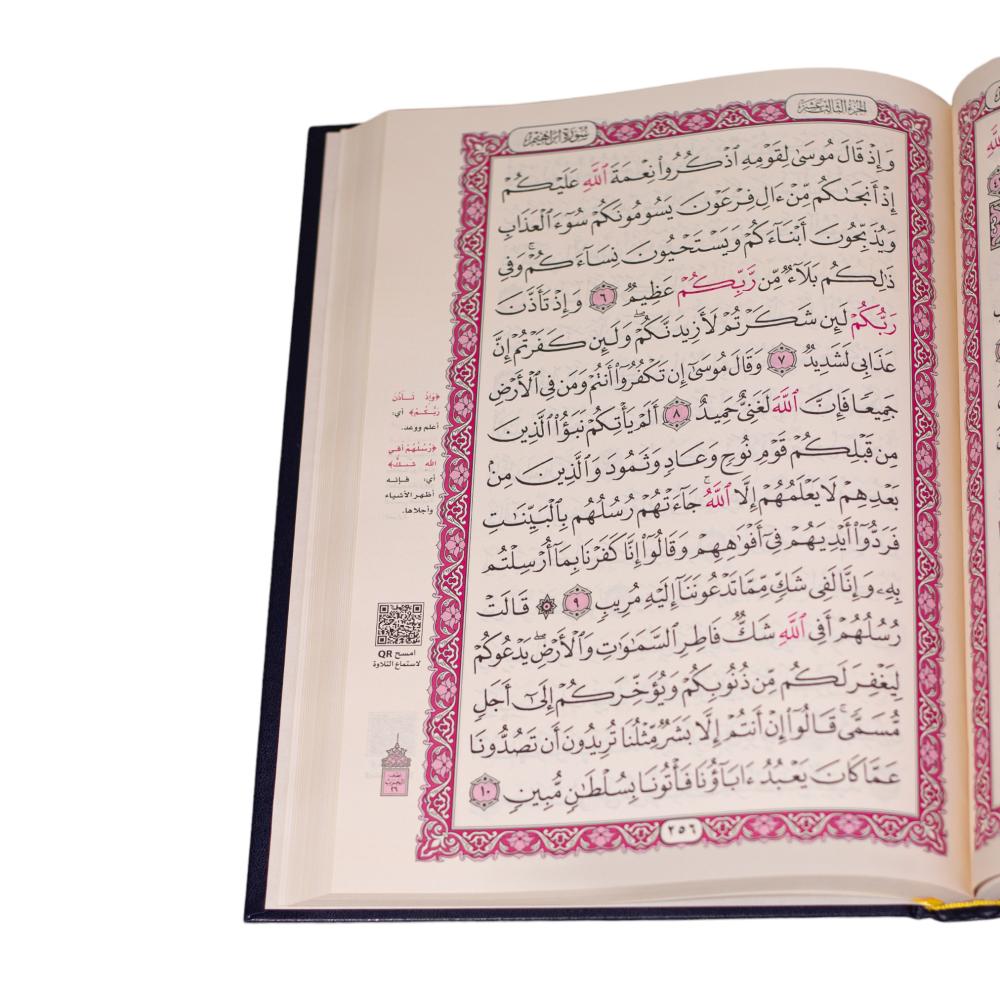 سُورَةُ إِبْرَاهِيم
الجُزْءُ الثَّالِثَ عَشَرَ
وَإِذْ قَالَ مُوسَىٰ لِقَوْمِهِ ٱذْكُرُوا۟ نِعْمَةَ ٱللَّهِ عَلَيْكُمْ
إِذْ أَنجَىٰكُم مِّنْ ءَالِ فِرْعَوْنَ يَسُومُونَكُمْ سُوٓءَ ٱلْعَذَابِ
وَيُذَبِّحُونَ أَبْنَآءَكُمْ وَيَسْتَحْيُونَ نِسَآءَكُمْ ۚ وَفِى
ذَٰلِكُم بَلَآءٌ مِّن رَّبِّكُمْ عَظِيمٌ ٦ وَإِذْ تَأَذَّنَ
رَبُّكُمْ لَئِن شَكَرْتُمْ لَأَزِيدَنَّكُمْ ۖ وَلَئِن كَفَرْتُمْ إِنَّ
عَذَابِى لَشَدِيدٌ ٧ وَقَالَ مُوسَىٰٓ إِن تَكْفُرُوٓا۟ أَنتُمْ وَمَن فِى ٱلْأَرْضِ
جَمِيعًا فَإِنَّ ٱللَّهَ لَغَنِىٌّ حَمِيدٌ ٨ أَلَمْ يَأْتِكُمْ نَبَؤُا۟ ٱلَّذِينَ
مِن قَبْلِكُمْ قَوْمِ نُوحٍ وَعَادٍ وَثَمُودَ وَٱلَّذِينَ مِنۢ
بَعْدِهِمْ لَا يَعْلَمُهُمْ إِلَّا ٱللَّهُ ۚ جَآءَتْهُمْ رُسُلُهُم بِٱلْبَيِّنَـٰتِ
فَرَدُّوٓا۟ أَيْدِيَهُمْ فِىٓ أَفْوَٰهِهِمْ وَقَالُوٓا۟ إِنَّا كَفَرْنَا بِمَآ أُرْسِلْتُم
بِهِۦ وَإِنَّا لَفِى شَكٍّ مِّمَّا تَدْعُونَنَآ إِلَيْهِ مُرِيبٍ ٩ ۞ قَالَتْ
رُسُلُهُمْ أَفِى ٱللَّهِ شَكٌّ فَاطِرِ ٱلسَّمَـٰوَٰتِ وَٱلْأَرْضِ ۖ يَدْعُوكُمْ
لِيَغْفِرَ لَكُم مِّن ذُنُوبِكُمْ وَيُؤَخِّرَكُمْ إِلَىٰٓ أَجَلٍ
مُّسَمًّى ۚ قَالُوٓا۟ إِنْ أَنتُمْ إِلَّا بَشَرٌ مِّثْلُنَا تُرِيدُونَ أَن تَصُدُّونَا
عَمَّا كَانَ يَعْبُدُ ءَابَآؤُنَا فَأْتُونَا بِسُلْطَـٰنٍ مُّبِينٍ ١٠
٢٥٦
﴿وَإِذْ تَأَذَّنَ
رَبُّكُمْ﴾ أي:
أعلم ووعد.
﴿رُسُلُهُمْ أَفِي
اللَّهِ شَكٌّ﴾
أي: فإنه
أظهر الأشياء
وأجلاها.
امسح QR
لاستماع التلاوة
نصف
الحزب
٢٦